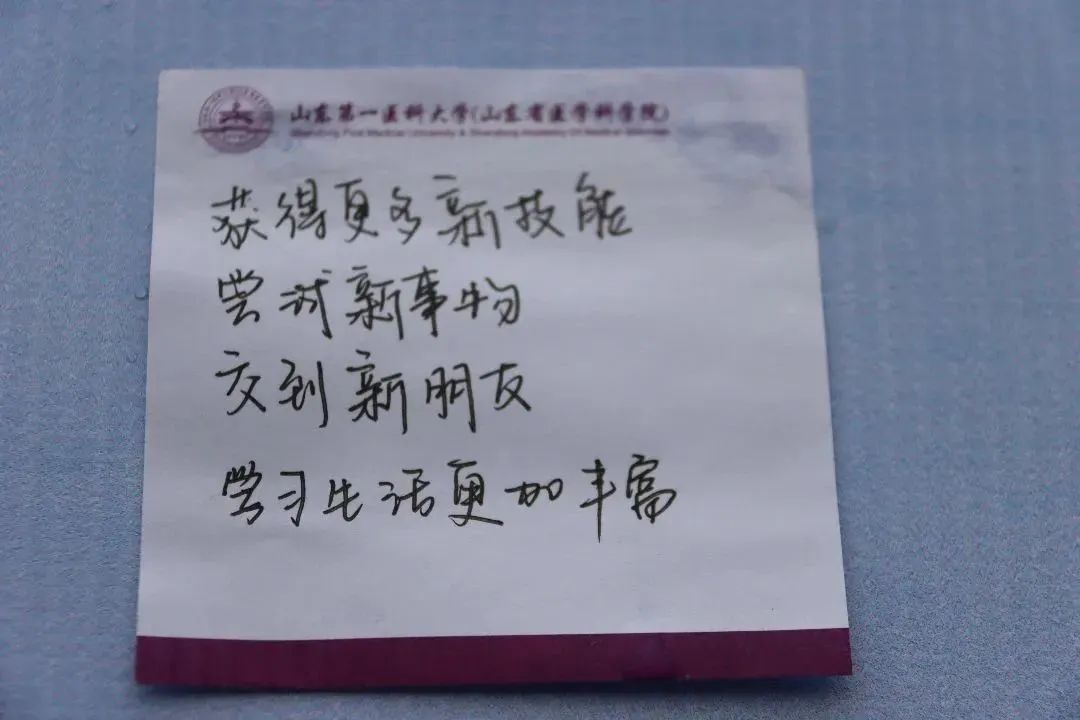 山东第一医科大学(山东省医学科学院)
Shandong First Medical University & Shandong Academy Of Medical Sciences
获得更多新技能
尝试新事物
交到新朋友
学习生活更加丰富